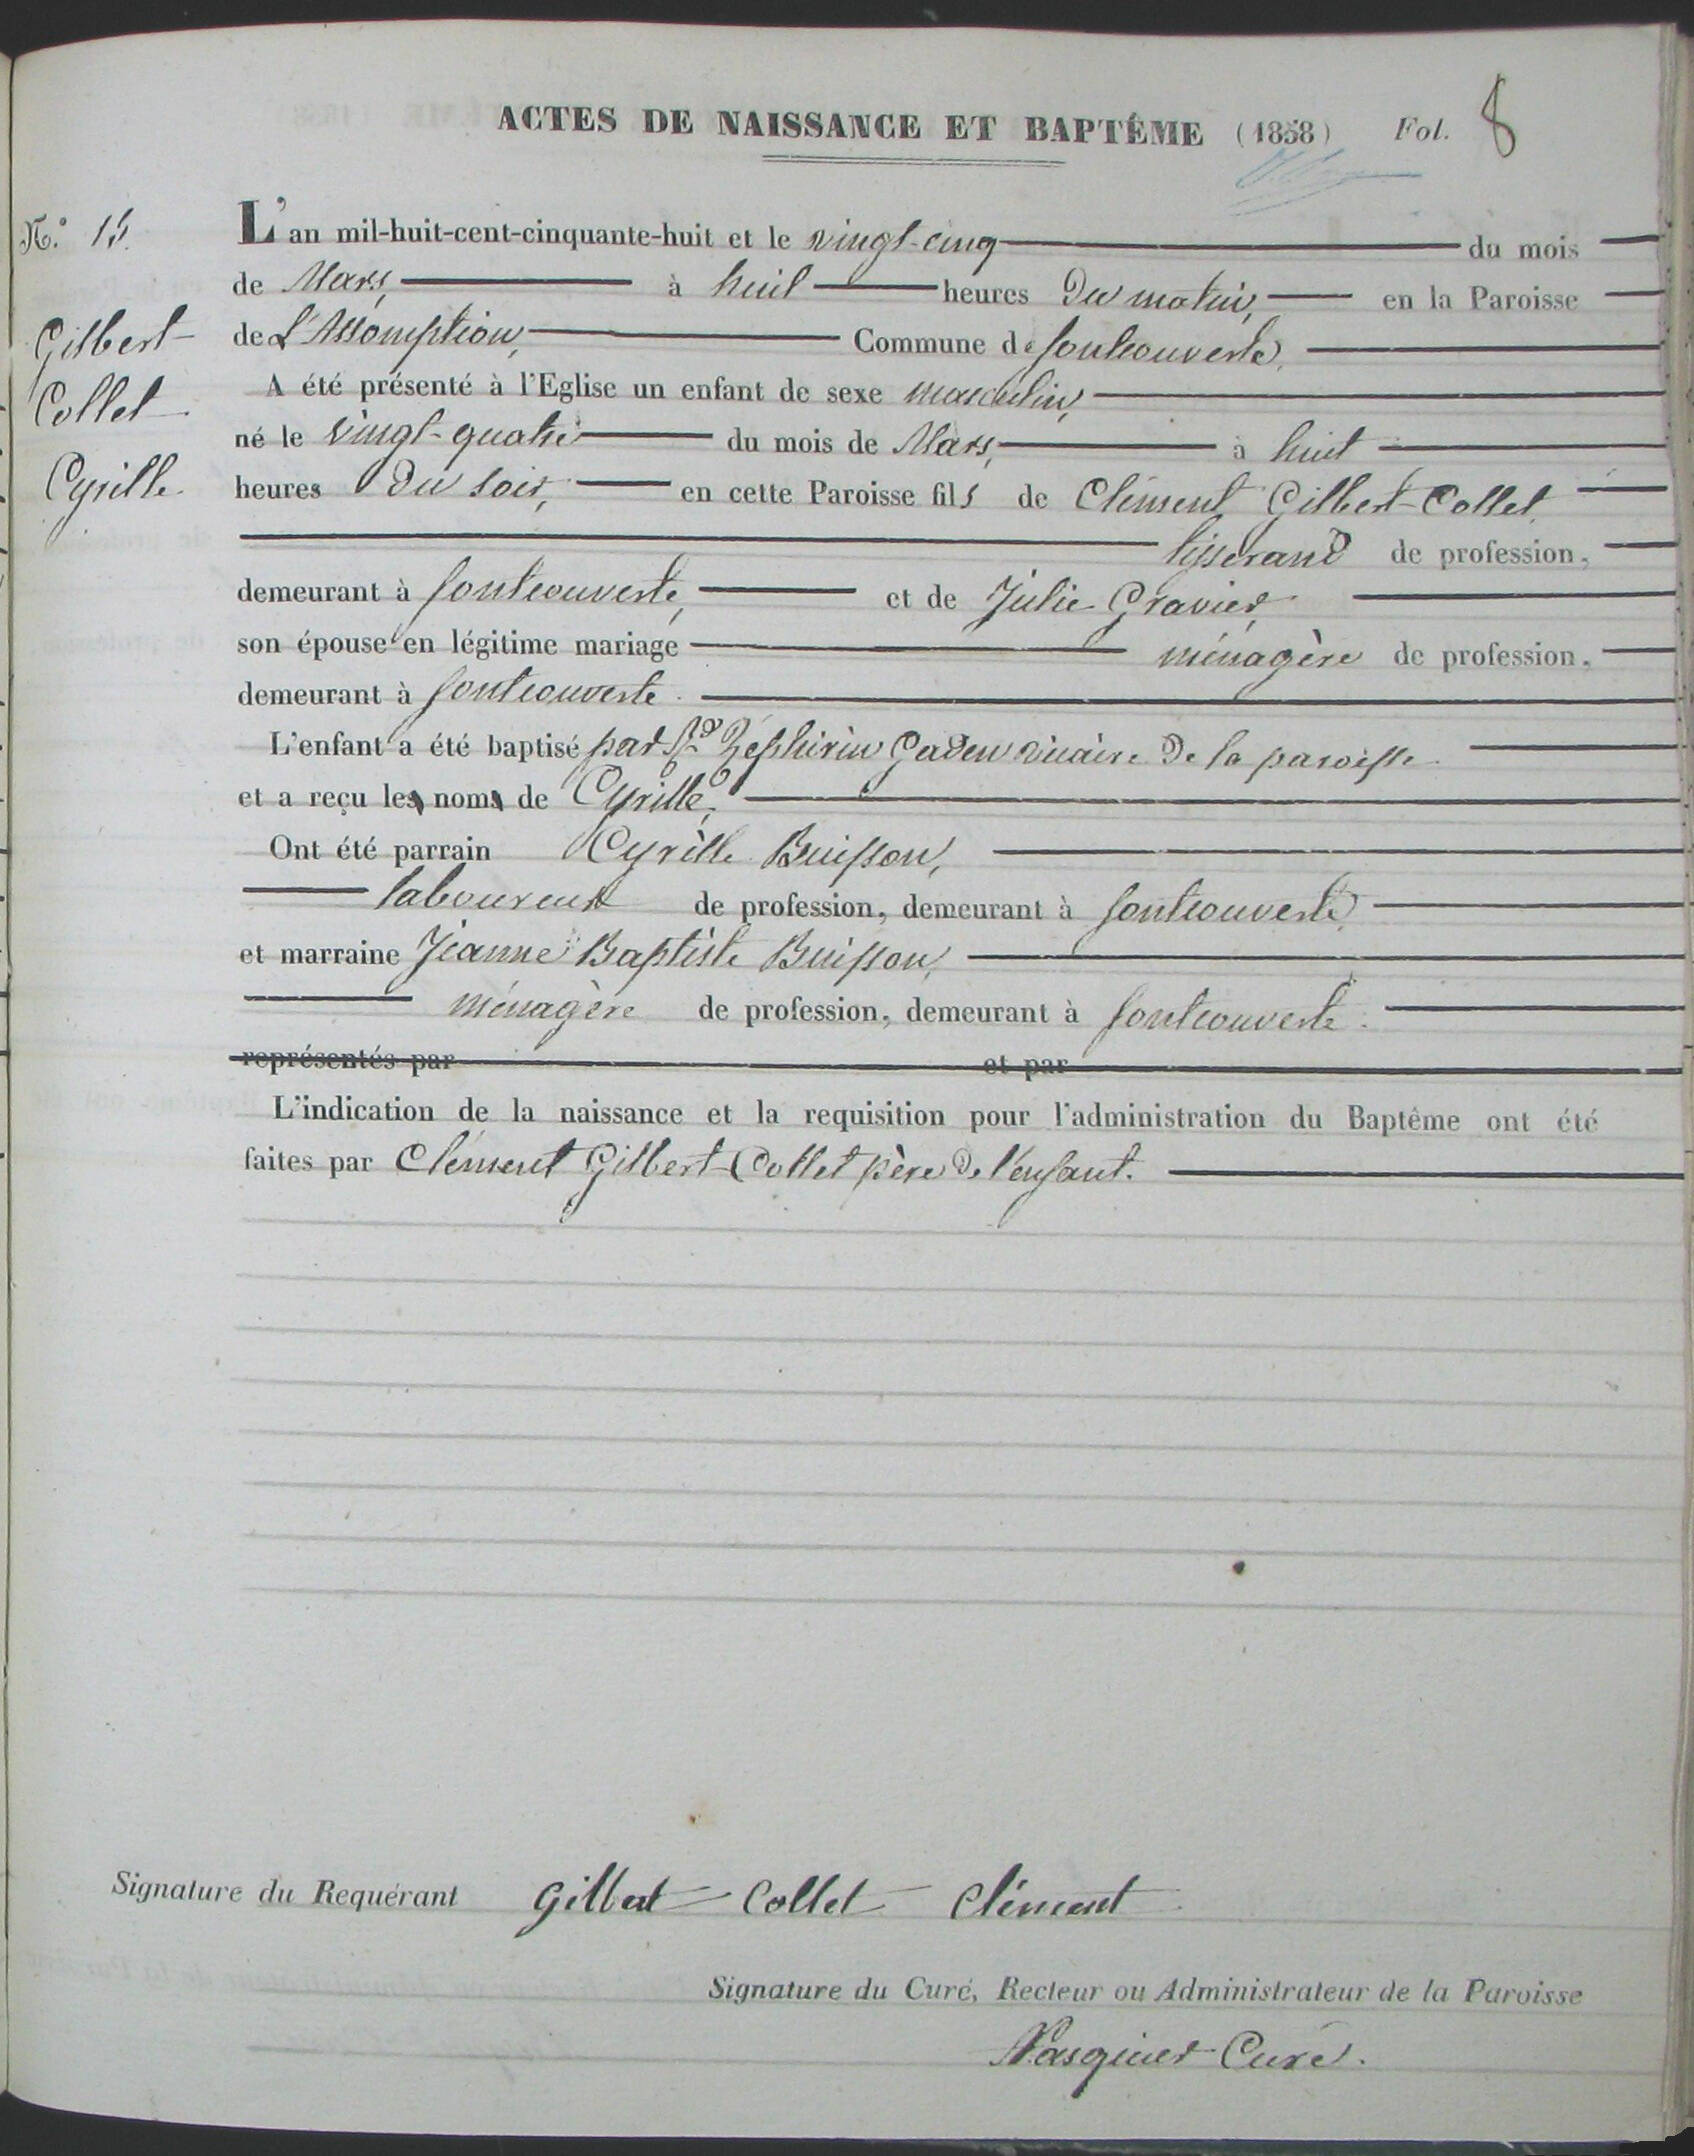 ACTES DE NAISSANCE ET BAPTÊME (1858) Fol. 8
N.° 15.
Gilbert-
Collet
Cyrille.
L'an mil-huit-cent-cinquante-huit et le vingt-cinq du mois
de Mars, à huit heures du matin, en la Paroisse
de L'Assomption, Commune de fontcouverte.
A été présenté à l'Eglise un enfant de sexe masculin,
né le vingt-quatre du mois de Mars, à huit
heures du soir, en cette Paroisse fils de Clément Gilbert-Collet
tisserand de profession,
demeurant à fontcouverte, et de Julie Gravier,
son épouse en légitime mariage ménagère de profession,
demeurant à fontcouverte.
L'enfant a été baptisé par Rd Zéphirin Gaden vicaire de la paroisse
et a reçu le nom de Cyrille,
Ont été parrain Cyrille Buisson,
laboureur de profession, demeurant à fontcouverte,
et marraine Jeanne Baptiste Buisson,
ménagère de profession, demeurant à fontcouverte.
représentés par et par
L'indication de la naissance et la requisition pour l'administration du Baptême ont été
faites par Clément Gilbert-Collet père de l'enfant.
Signature du Requérant Gilbert-Collet Clément
Signature du Curé, Recteur ou Administrateur de la Paroisse
Pasquier Curé.